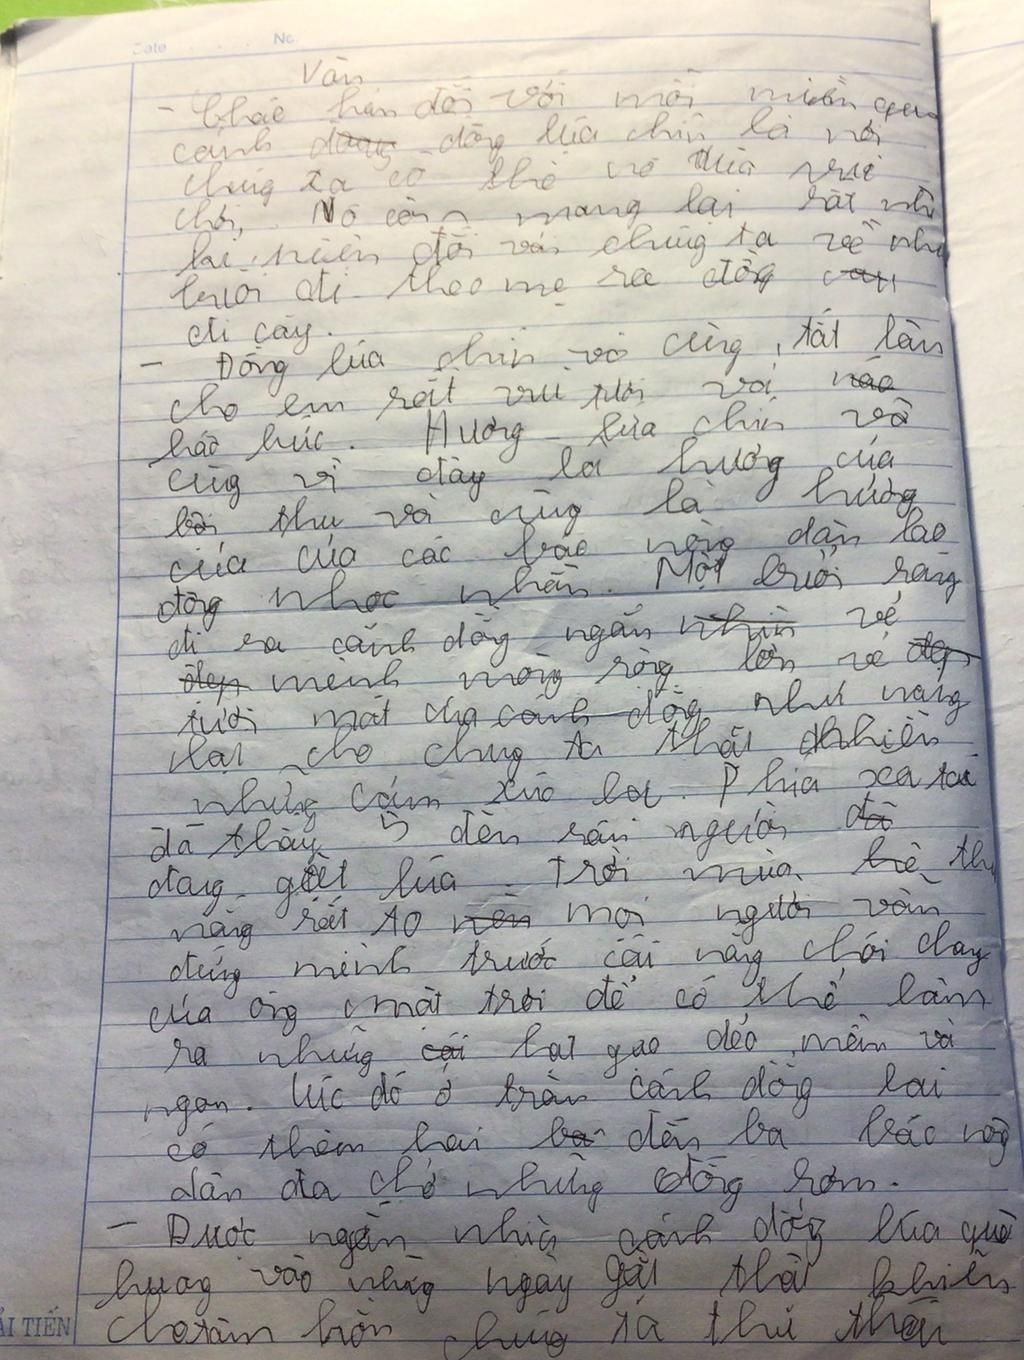 Date No.
Văn
- Chắc hẳn đối với mỗi miền quê
cánh đồng lúa chín là nơi
chúng ta có thể nô đùa vui
chơi, Nó còn mang lại rất
kỉ niệm đối với chúng ta về
buổi đi theo mẹ ra đồng
đi cấy.
- Đồng lúa chín vô cùng, tất làm
cho em rất vui tươi và
háo hức. Hương lúa chín vô
cùng vì đây là hương của
thu và cũng là hương
của của các bác nông dân lao
động nhọc nhằn. Một buổi sáng
đi ra cánh đồng ngắm vẻ
mênh mông rộng lớn vẻ
tươi mát của cánh đồng như mang
lại cho chúng ta thật nhiều
những cảm xúc lạ. Phía xa tôi
đã thấy 5 đến sáu người
đang gặt lúa. Trời mùa thu
nắng rất to mọi người vẫn
đứng mình trước cái nắng chói chang
của ông mặt trời để có thể làm
ra những hạt gạo dẻo, mềm và
ngon. Lúc đó ở trên cánh đồng lại
có thêm hai đến ba bác nông
dân đã chở những đống rơm.
- Được ngắm nhìn cánh đồng lúa quê
hương vào những ngày gặt thật khiến
cho tâm hồn chúng ta thư thái
ẢI TIẾN